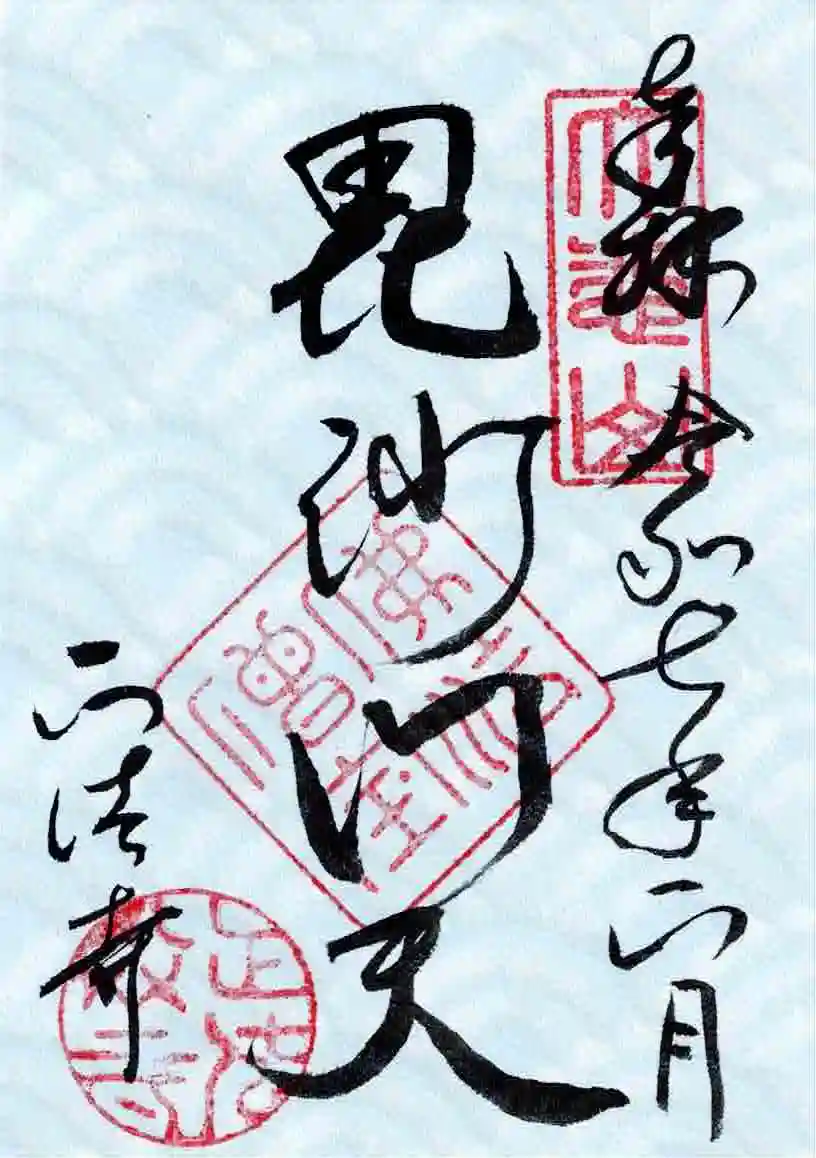 奉拝 令和七年正月
毘沙門天
正法寺